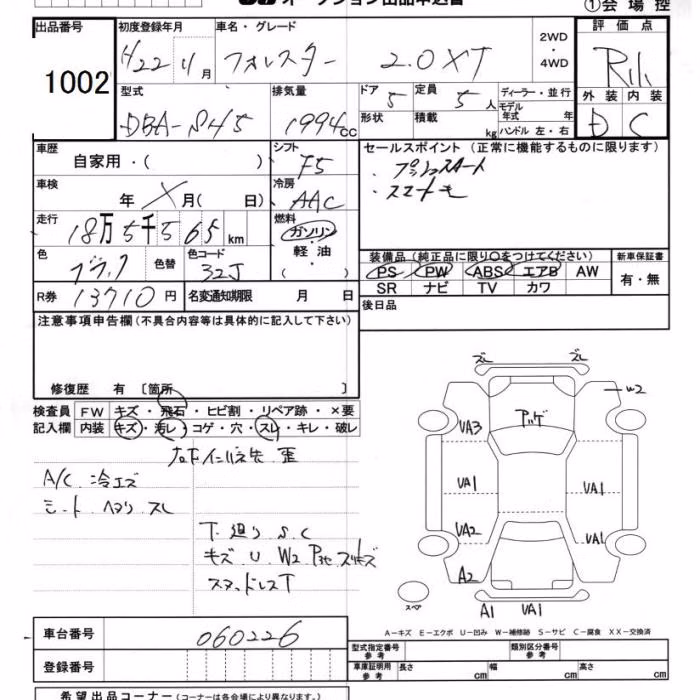 オークション出品申込書
①会場控
出品番号 1002
初度登録年月 H22 年 11 月
車名・グレード フォレスター 2.0XT
2WD ・ 4WD
評価点
型式 DBA-SH5
排気量 1994 CC
ドア 5
定員 5 人
形状
積載 kg
ディーラー・並行
モデル年式 年
ハンドル 左・右
外装 内装
D C
車歴 自家用・( )
シフト F5
セールスポイント (正常に機能するものに限ります)
・プッシュスタート
・スマートキー
車検 年 X 月( 日)
冷房 AAC
走行 18万5千565 km
燃料 ガソリン・軽油・( )
色 ブラック 色替 色コード 32J
装備品(純正品に限り○をつけてください)
新車保証書
PS PW ABS エアB AW
有・無
SR ナビ TV カワ
R券 13710 円 名変通知期限 月 日
後日品
注意事項申告欄(不具合内容等は具体的に記入して下さい)
修復歴 有 〔箇所 〕
検査員 FW キズ・飛石・ヒビ割・リペア跡・×要
記入欄 内装 キズ・汚レ・コゲ・穴・スレ・キレ・破レ
A/C 冷エズ
シート ヘタリ スレ
下廻り S.C
キズ U W2
ズレ ズレ
W2
アゲ
VA3
VA1 VA1
VA2 VA1
A2
スペア
A1 VA1
A-キズ E-エクボ U-凹み W-補修跡 S-サビ C-腐食 XX-交換済
車台番号 060226
型式指定番号 参考
類別区分番号 参考
登録番号
車庫証明用 参考 長さ cm 幅 cm 高さ cm
希望出品コーナー(コーナーは各会場により異なります。)